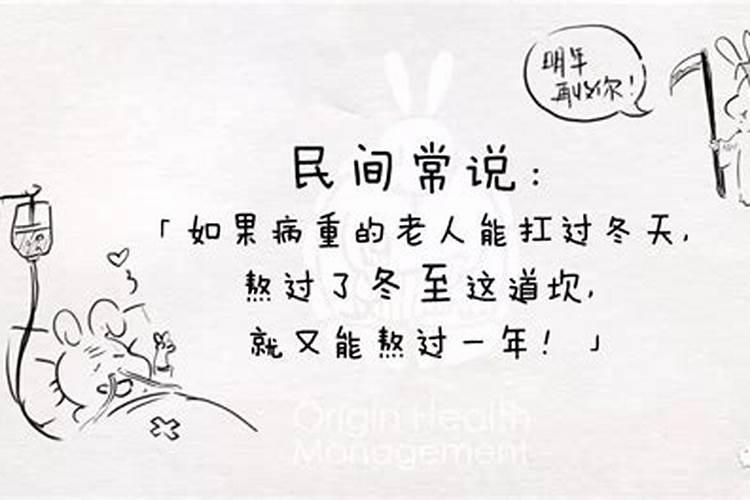 明年
再收你!
民间常说:
「如果病重的老人能扛过冬天,
熬过了冬至这道坎,
就又能熬过一年!」
Origin Health
Management